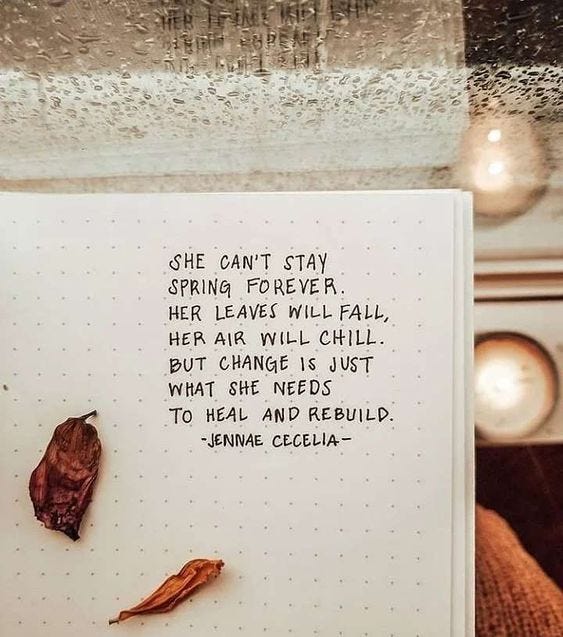 SHE CAN'T STAY
SPRING FOREVER.
HER LEAVES WILL FALL,
HER AIR WILL CHILL.
BUT CHANGE IS JUST
WHAT SHE NEEDS
TO HEAL AND REBUILD.
-JENNAE CECELIA-